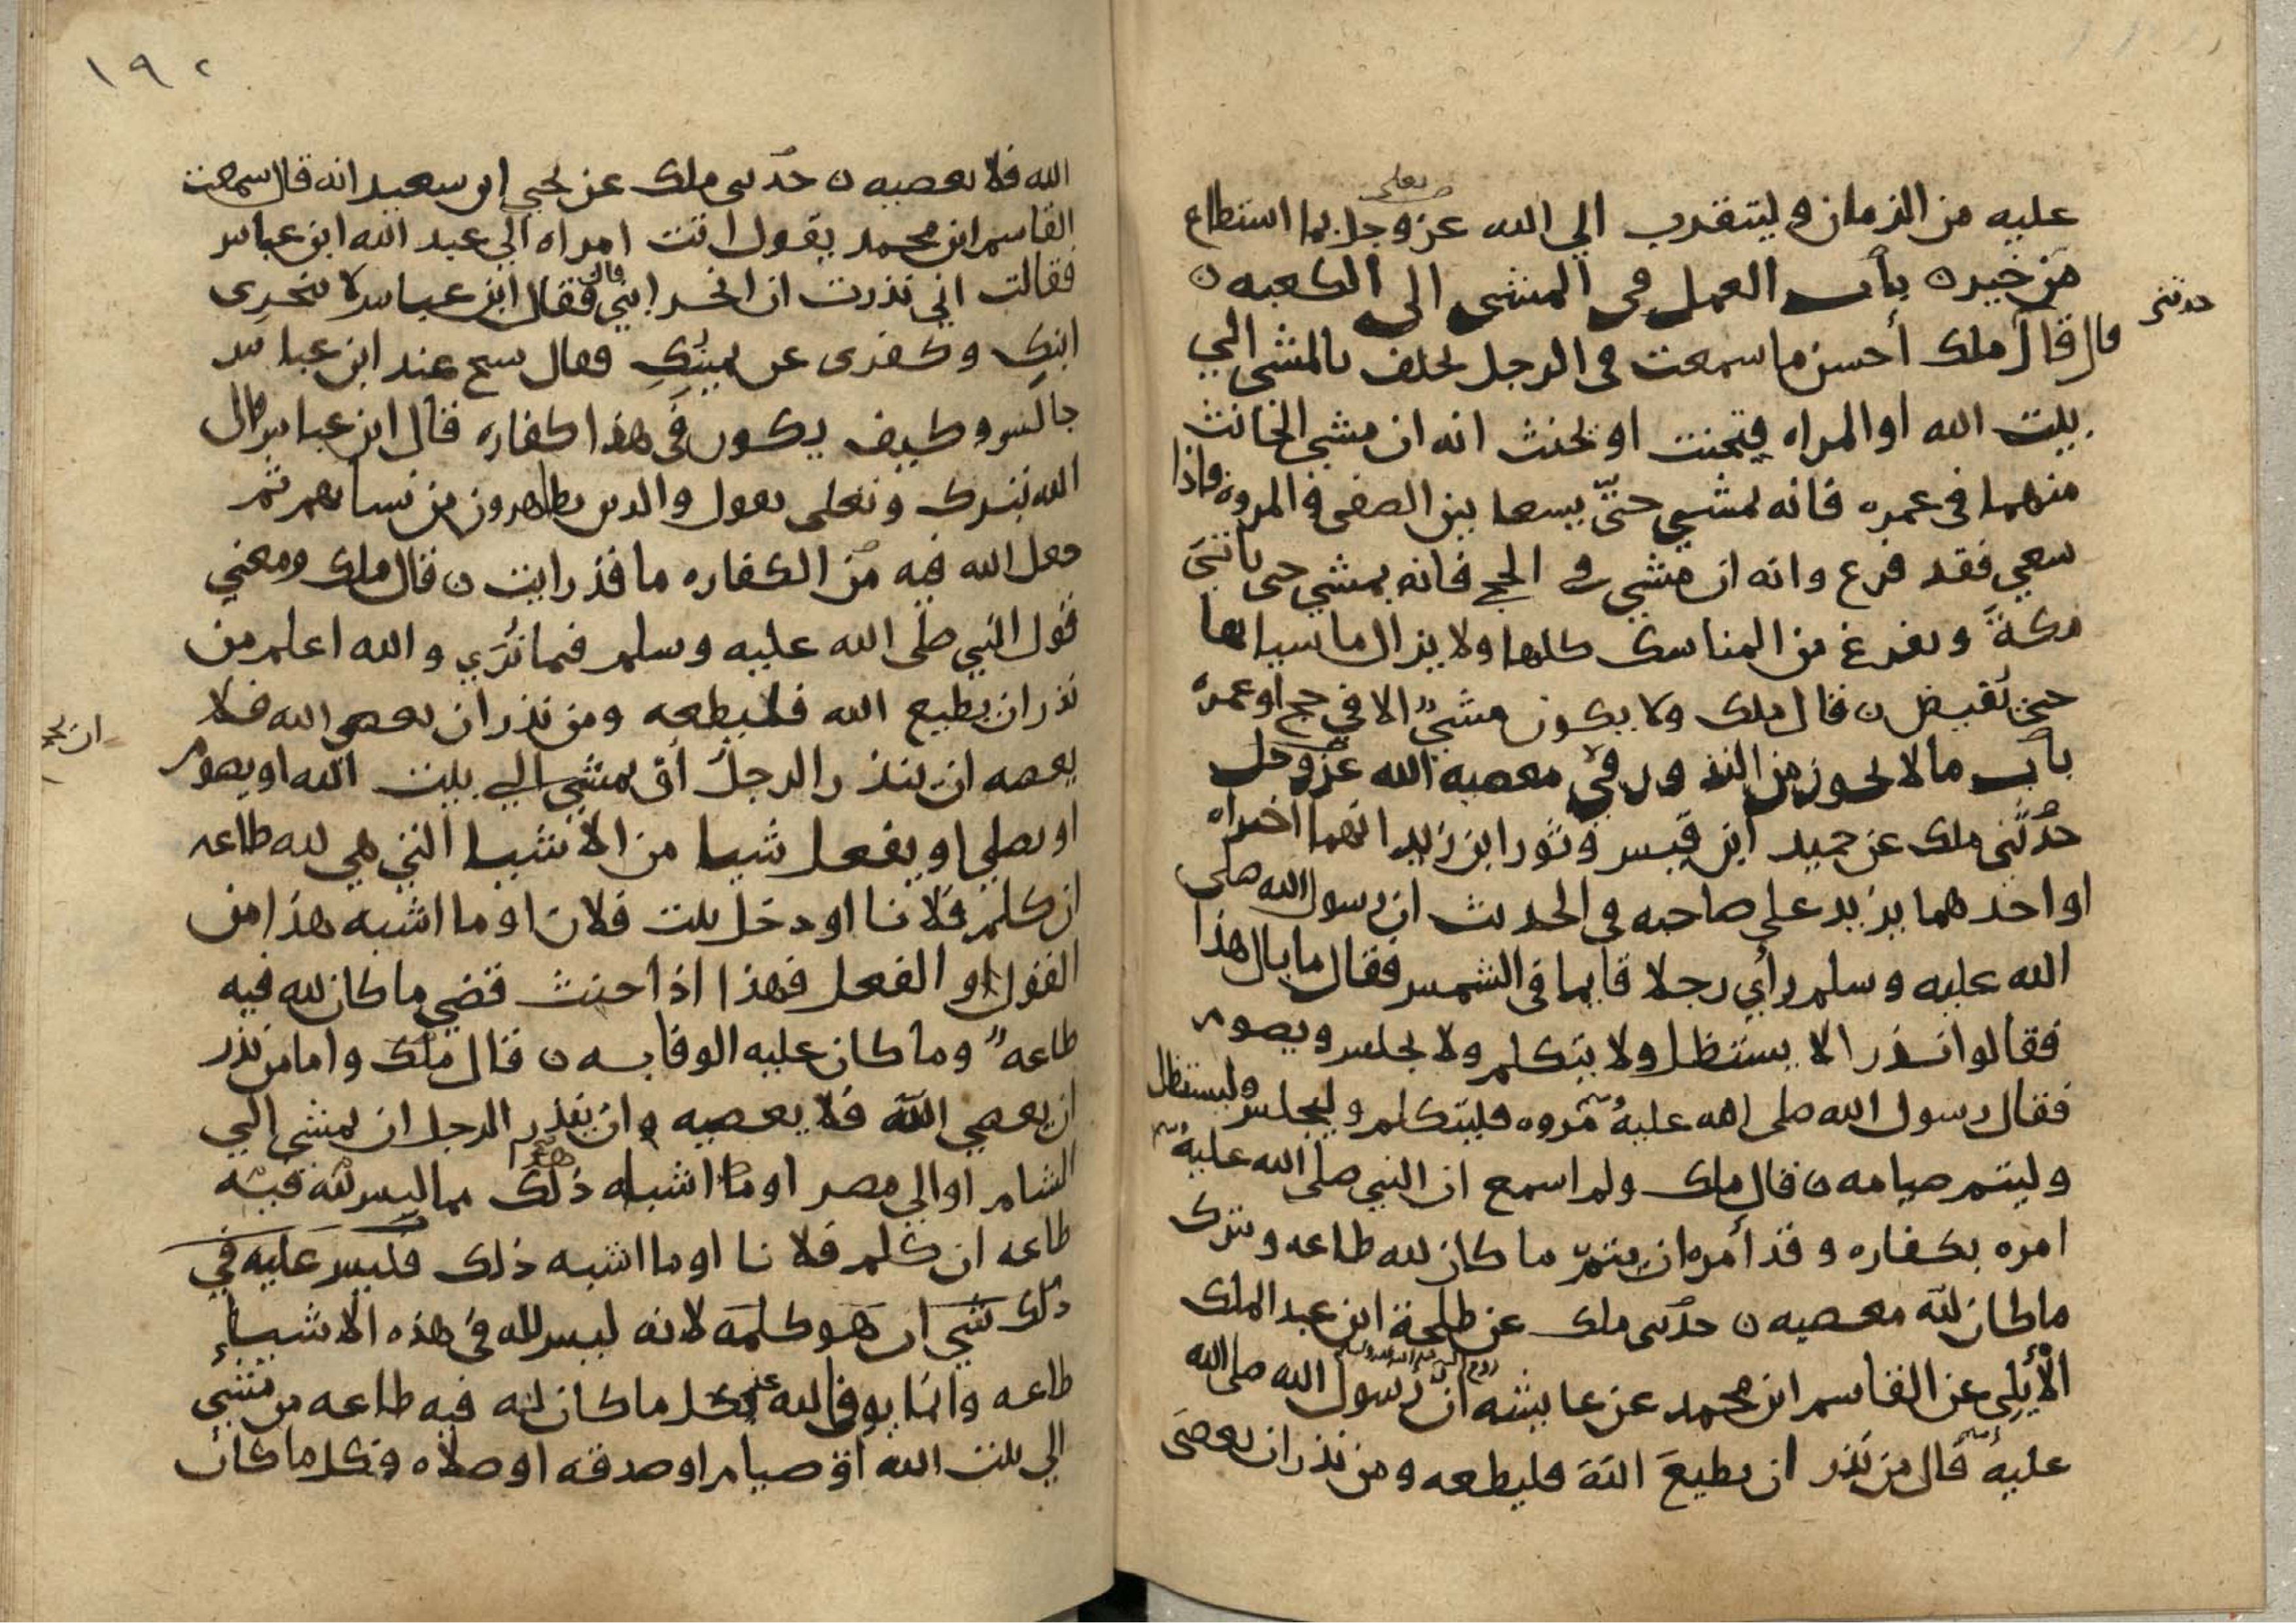 تعلى
عليه من الزمان وليتقرب الي الله عز وجل بما استطاع
من خير ه باب العمل في المشي الى الكعبه ه
حدثني
قال قال ملك أحسن ما سمعت في الرجل يحلف بالمشي الي
بيت الله او المراه فيحنث او تحنث انه ان مشي الحانث
منهما في عمره فانه يمشي حتّي يسعا بين الصفى والمروه فاذا
سعي فقد فرغ وانه ان مشي في الحج فانه يمشي حتى ياتي
مكة ويفرغ من المناسك كلها ولا يزال ماشيا لها
حتي تقيض ه قال ملك ولا يكون مشيٌ الا في حج او عمره
باب ما لا يحوز من النذور في معصيه الله عز وجل
حدثني ملك عن حميد ابن قيس وثور ابن زيد انهما اخبراه
او احدهما يزيد على صاحبه في الحديث ان رسول الله صلى
الله عليه وسلم رأي رجلا قايما في الشمس فقال ما بال هذا
فقالوا نذر الا يستظل ولا يتكلم ولا يجلس ويصوم
فقال رسول الله صلى الله عليه مروه فليتكلم وليجلس وليستظل
وليتم صيامه ه قال ملك ولم اسمع ان النبي صلى الله عليه
امره بكفاره وقد أمره ان يتمّ ما كان لله طاعه ويترك
ما كان لله معصيه ه حدثنى ملك عن طلحة ابن عبد الملك
الأيلي عن القاسم ابن محمد عن عايشه ان رسول الله صلى الله
عليه قال من نذر ان يطيعَ اللهَ فليطعه ومن نذر ان يعصىَ
١٩٢
الله فلا يعصيه ه حدثنى ملك عن يحيي ابن سعيد انه قال سمعت
القاسم ابن محمد يقول اتت امراه الي عبد الله ابن عباس
فقالت اني نذرت ان انحر ابني قال فقال ابن عباس لا تنحرى
ابنك وكفرى عن يمينك فقال شيخ عند ابن عباس
جالس وكيف يكون في هذا كفاره قال ابن عباس قال
الله تبرك وتعلى يقول والذين يظاهرون من نسايهم ثم
جعل الله فيه من الكفاره ما قد رايت ه قال ملك ومعني
قول النبي صلى الله عليه وسلم فيما نري والله اعلم من
نذر ان يطيع الله فليطعه ومن نذر ان يعصي الله فلا
يعصه ان ينذر الرجل ان يمشي الي بيت الله او يصوم
او يصلي او يفعل شيا من الاشيا التي هي لله طاعه
ان كلم فلانا او دخل بيت فلان او ما اشبه هذا من
القول او الفعل فهذا اذا حنث قضي ما كان لله فيه
طاعهً وما كان عليه الوفا به ه قال ملك واما من نذر
ان يعصي الله فلا يعصيه وان ينذر الرجل ان يمشي الي
الشام او الي مصر او ما اشباه ذلك مما ليس لله فيه
طاعه ان كلم فلانا او ما اشبه ذلك فليس عليه في
ذلك شي ان هو كلمه لانه ليس لله في هذه الاشياء
طاعه وانما يوفا لله عن كل ما كان لله فيه طاعه من مشي
الي بيت الله او صيام او صدقه او صلاه وكل ما كان